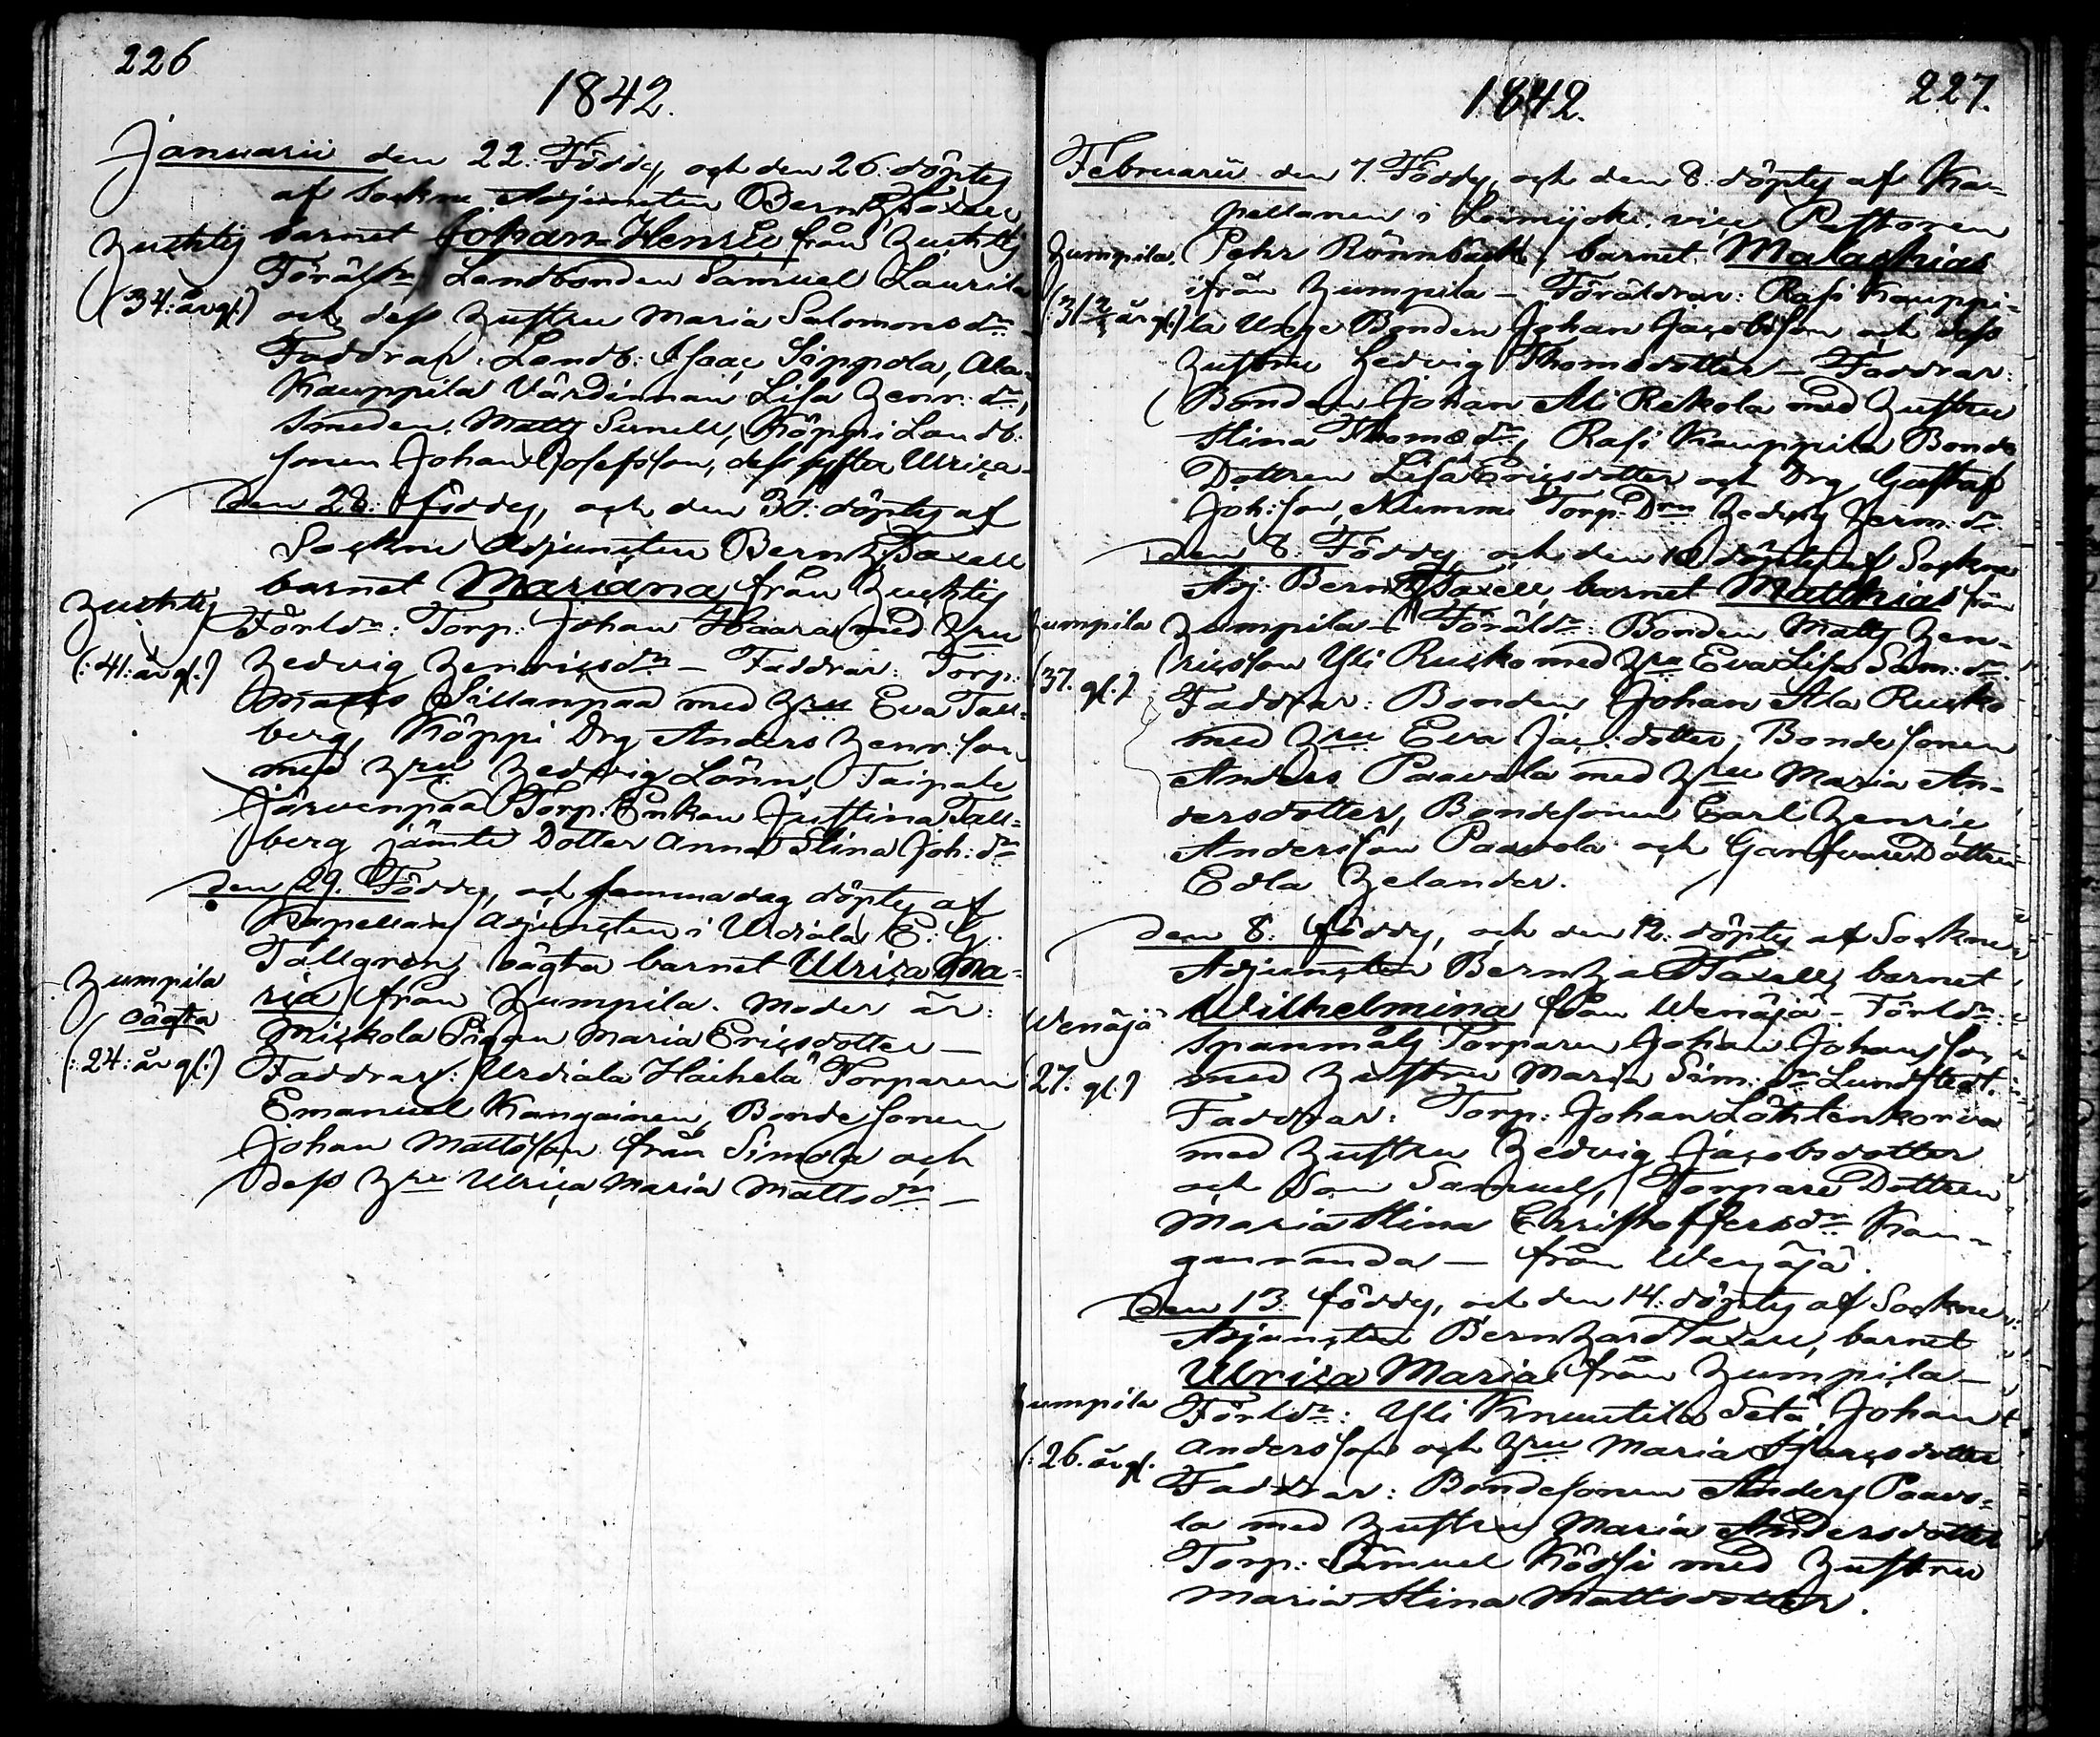 226
1842.
Januarii den 22. Föddes, och den 26. döptes
af Sockne Adjuncten Bernh. Taxell
barnet Johan Henric från Huhtis
Huhtis
Föräldr. Landbonden Samuel Laurila
(34: år gl:)
och dess Hustru Maria Salomonsdr
Faddrar: Landb: Isaac Sippola, Ala
Kauppila Värdinnan Lisa Henr: dr,
Smeden Matts Sirnell, Köppi Landb:
sonen Johan Josefsson, dess syster Ulrica
den 28. föddes, och den 30. döptes af
Sockne Adjuncten Bernh. Taxell
barnet Mariana från Huhtis
Huhtis
Förldr: Torp: Johan Haara med Hru
(:41: år gl:)
Hedvig Henricsdr – Faddrar: Torp:
Matts Sillanpää med Hru Eva Tall-
berg, Köppi Drg Anders Henr: son
med Hru Hedvig Lönn, Taipale
Järvenpää Torp: Enkan Justina Tall=
berg jämte Dotter Anna Stina Joh: dr
den 29. Föddes, och samma dag döptes af
Kapellans Adjuncten i Urdiala E. G.
Tallgren, oägta barnet Ulrica Ma-
Humpila
ria från Humpila. Moder är:
oägta
Mickola Pigan Maria Ericsdotter —
(:24: år gl:)
Faddrar: Urdiala Haihela Torparen
Emanuel Kangainen, Bonde sonen
Johan Mattsson från Simola och
dess Hru Ulrica Maria Mattsdr —
227.
1842.
Februarii den 7. Föddes, och den 8. döptes af Ka-
pellanen i Loimijoki vice Pastoren
Humpila.
Pehr Rönnbäck, barnet Malachias
ifrån Humpila – Föräldrar: Rasi Kauppi-
(31 år gl:)
la Unge Bonden Johan Jacobsson och dess
Hustru Hedvig Thomsdotter – Faddrar:
Bonden Johan Ali Rekola med Hustru
Stina Thoms dr, Rasi Kauppila Bonde
Dottren Lisa Ericsdotter och Drg Gustaf
Joh: son, Nummi Torp: Drn Hedvig Herm: dr
den 8. Föddes, och den 10 döptes af Sockne
Adj: Bernh Taxell, barnet Matthias från
Humpila
Humpila – Föräldr: Bonden Matts Hen-
ricsson Yli Ruisko med Hru Eva Lisa Sam: dr
(37. gl:)
Faddrar: Bonden Johan Ala Ruisko
med Hru Eva Jac: dotter, Bonde sonen
Anders Paavola med Hru Maria An-
dersdotter, Bondesonen Carl Henric
Andersson Paavola och Dottren
Edla Helander.
den 8. föddes, och den 12. döptes af Sockne
Adjuncten Bernhard Taxell, barnet
Wilhelmina från Wenäjä – Förldr:
Wenäjä
Spanmåls Torparen Johan Johansson
(27. gl:)
med Hustru Maria Sim: dr Lundstedt.
Faddrar: Torp: Johan Löhtenkorva
med Hustru Hedvig Jacobsdotter
och Son Samuel, Torpare Dottren
Maria Stina Christoffersdr Kan-
ganranda — från Wenäjä.
den 13. föddes, och den 14. döptes af Sockne
Adjuncten Bernhard Taxell, barnet
Ulrica Maria från Humpila –
Humpila
Förldr: Yli Knuutila Setä, Johan
(:26. år gl.
Andersson och Hru Maria Marcsdotter
Faddrar: Bondesonen Anders Paavo-
la med Hustru Maria Andersdotter
Torp: Samuel Kössi med Hustru
Maria Stina Mattsdotter.